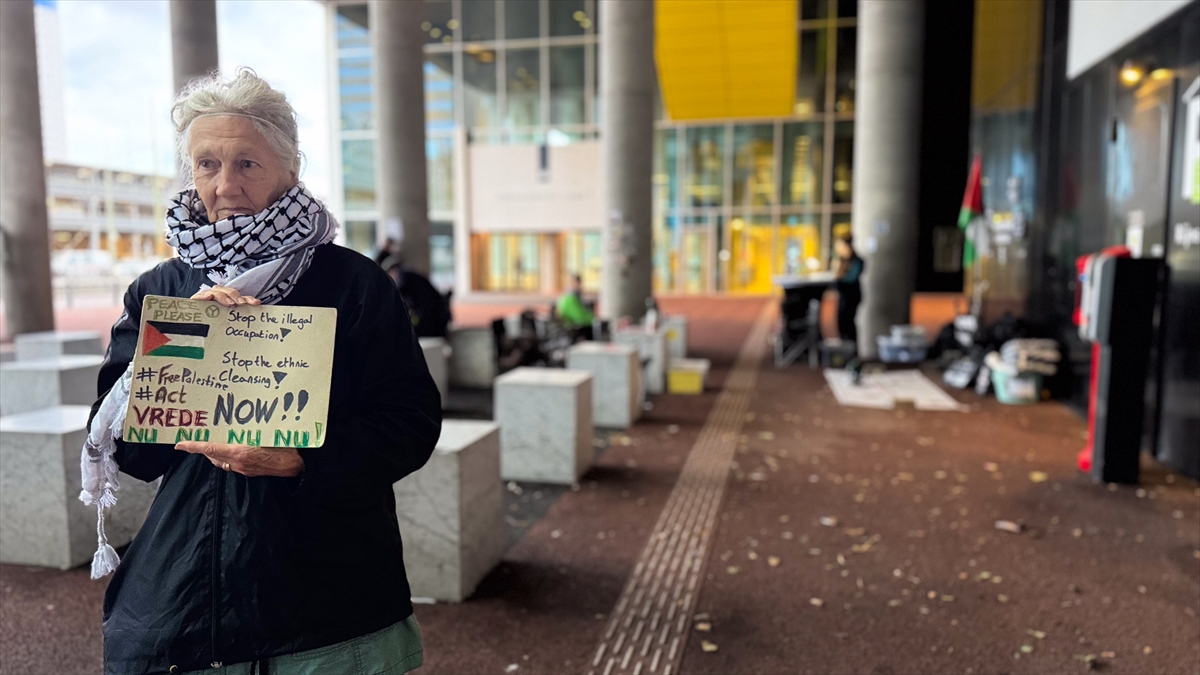 PEACE
PLEASE
Stop the illegal
Occupation!
Stop the ethnic
#FreePalestine Cleansing!
#Act
VREDE NOW!!
NU NU NU NU!